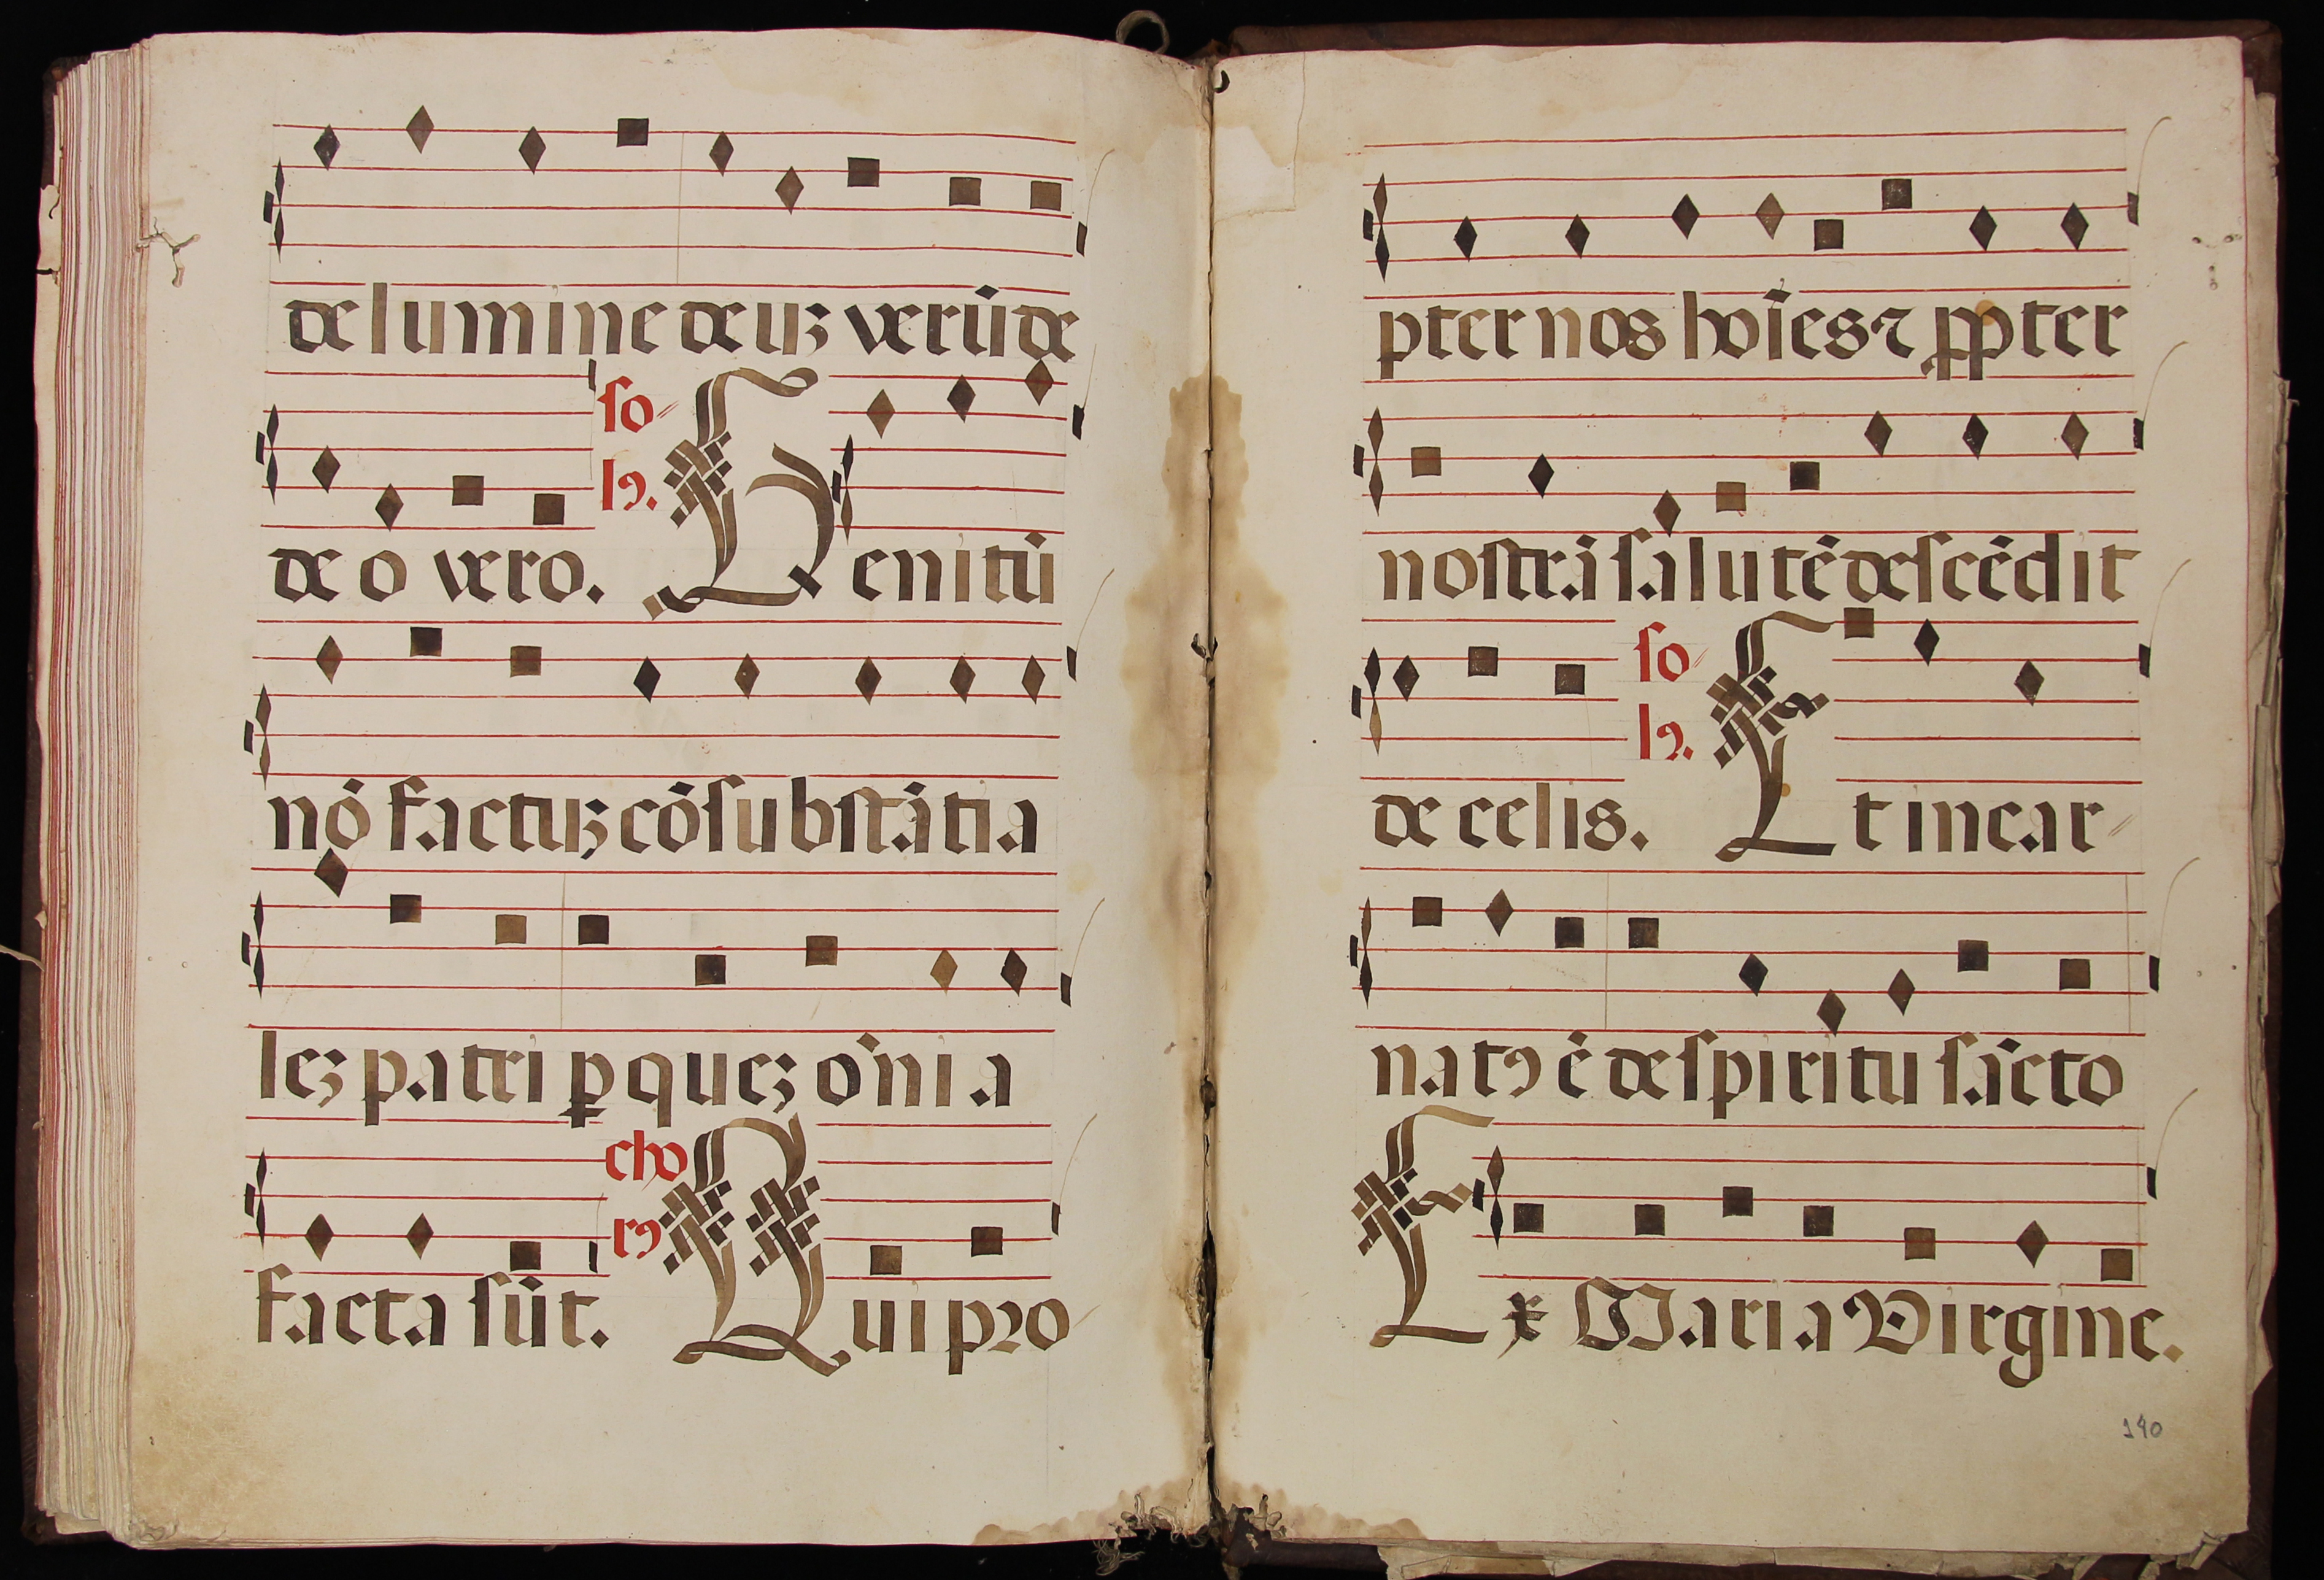 de lumine deuꝫ verū de
deo vero. so- lꝰ. Genitū
nō factuꝫ cōsubstātia
leꝫ patri ꝑ queꝫ oīnia
facta sūt. cho rꝰ Qui pꝛo
pter nos hoīes ⁊ ꝓpter
nostrā salutē descēdit
de celis. so- lꝰ. Et incar-
natꝰ ē de spiritu sācto
Ex Maria Virgine.
190